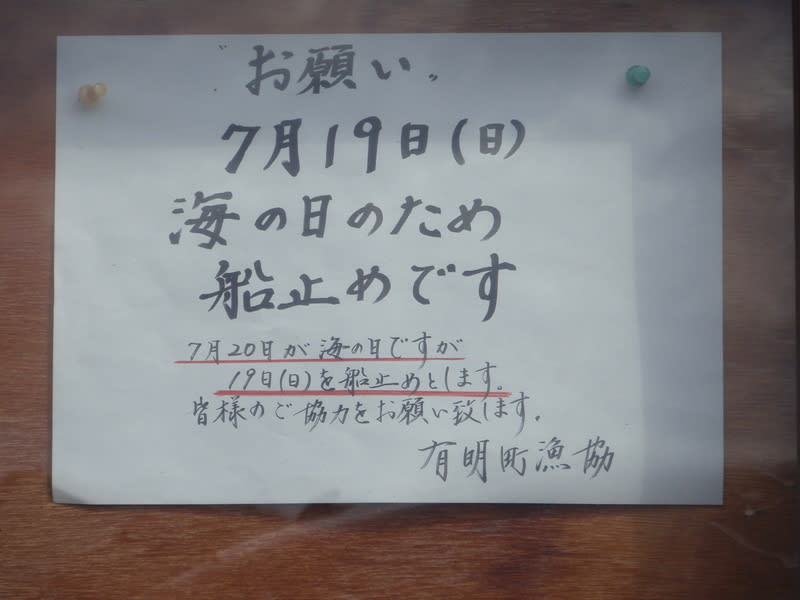 "お願い"
7月19日(日)
海の日のため
船止めです
7月20日が海の日ですが
19日(日)を船止めとします。
皆様のご協力をお願い致します。
有明町漁協